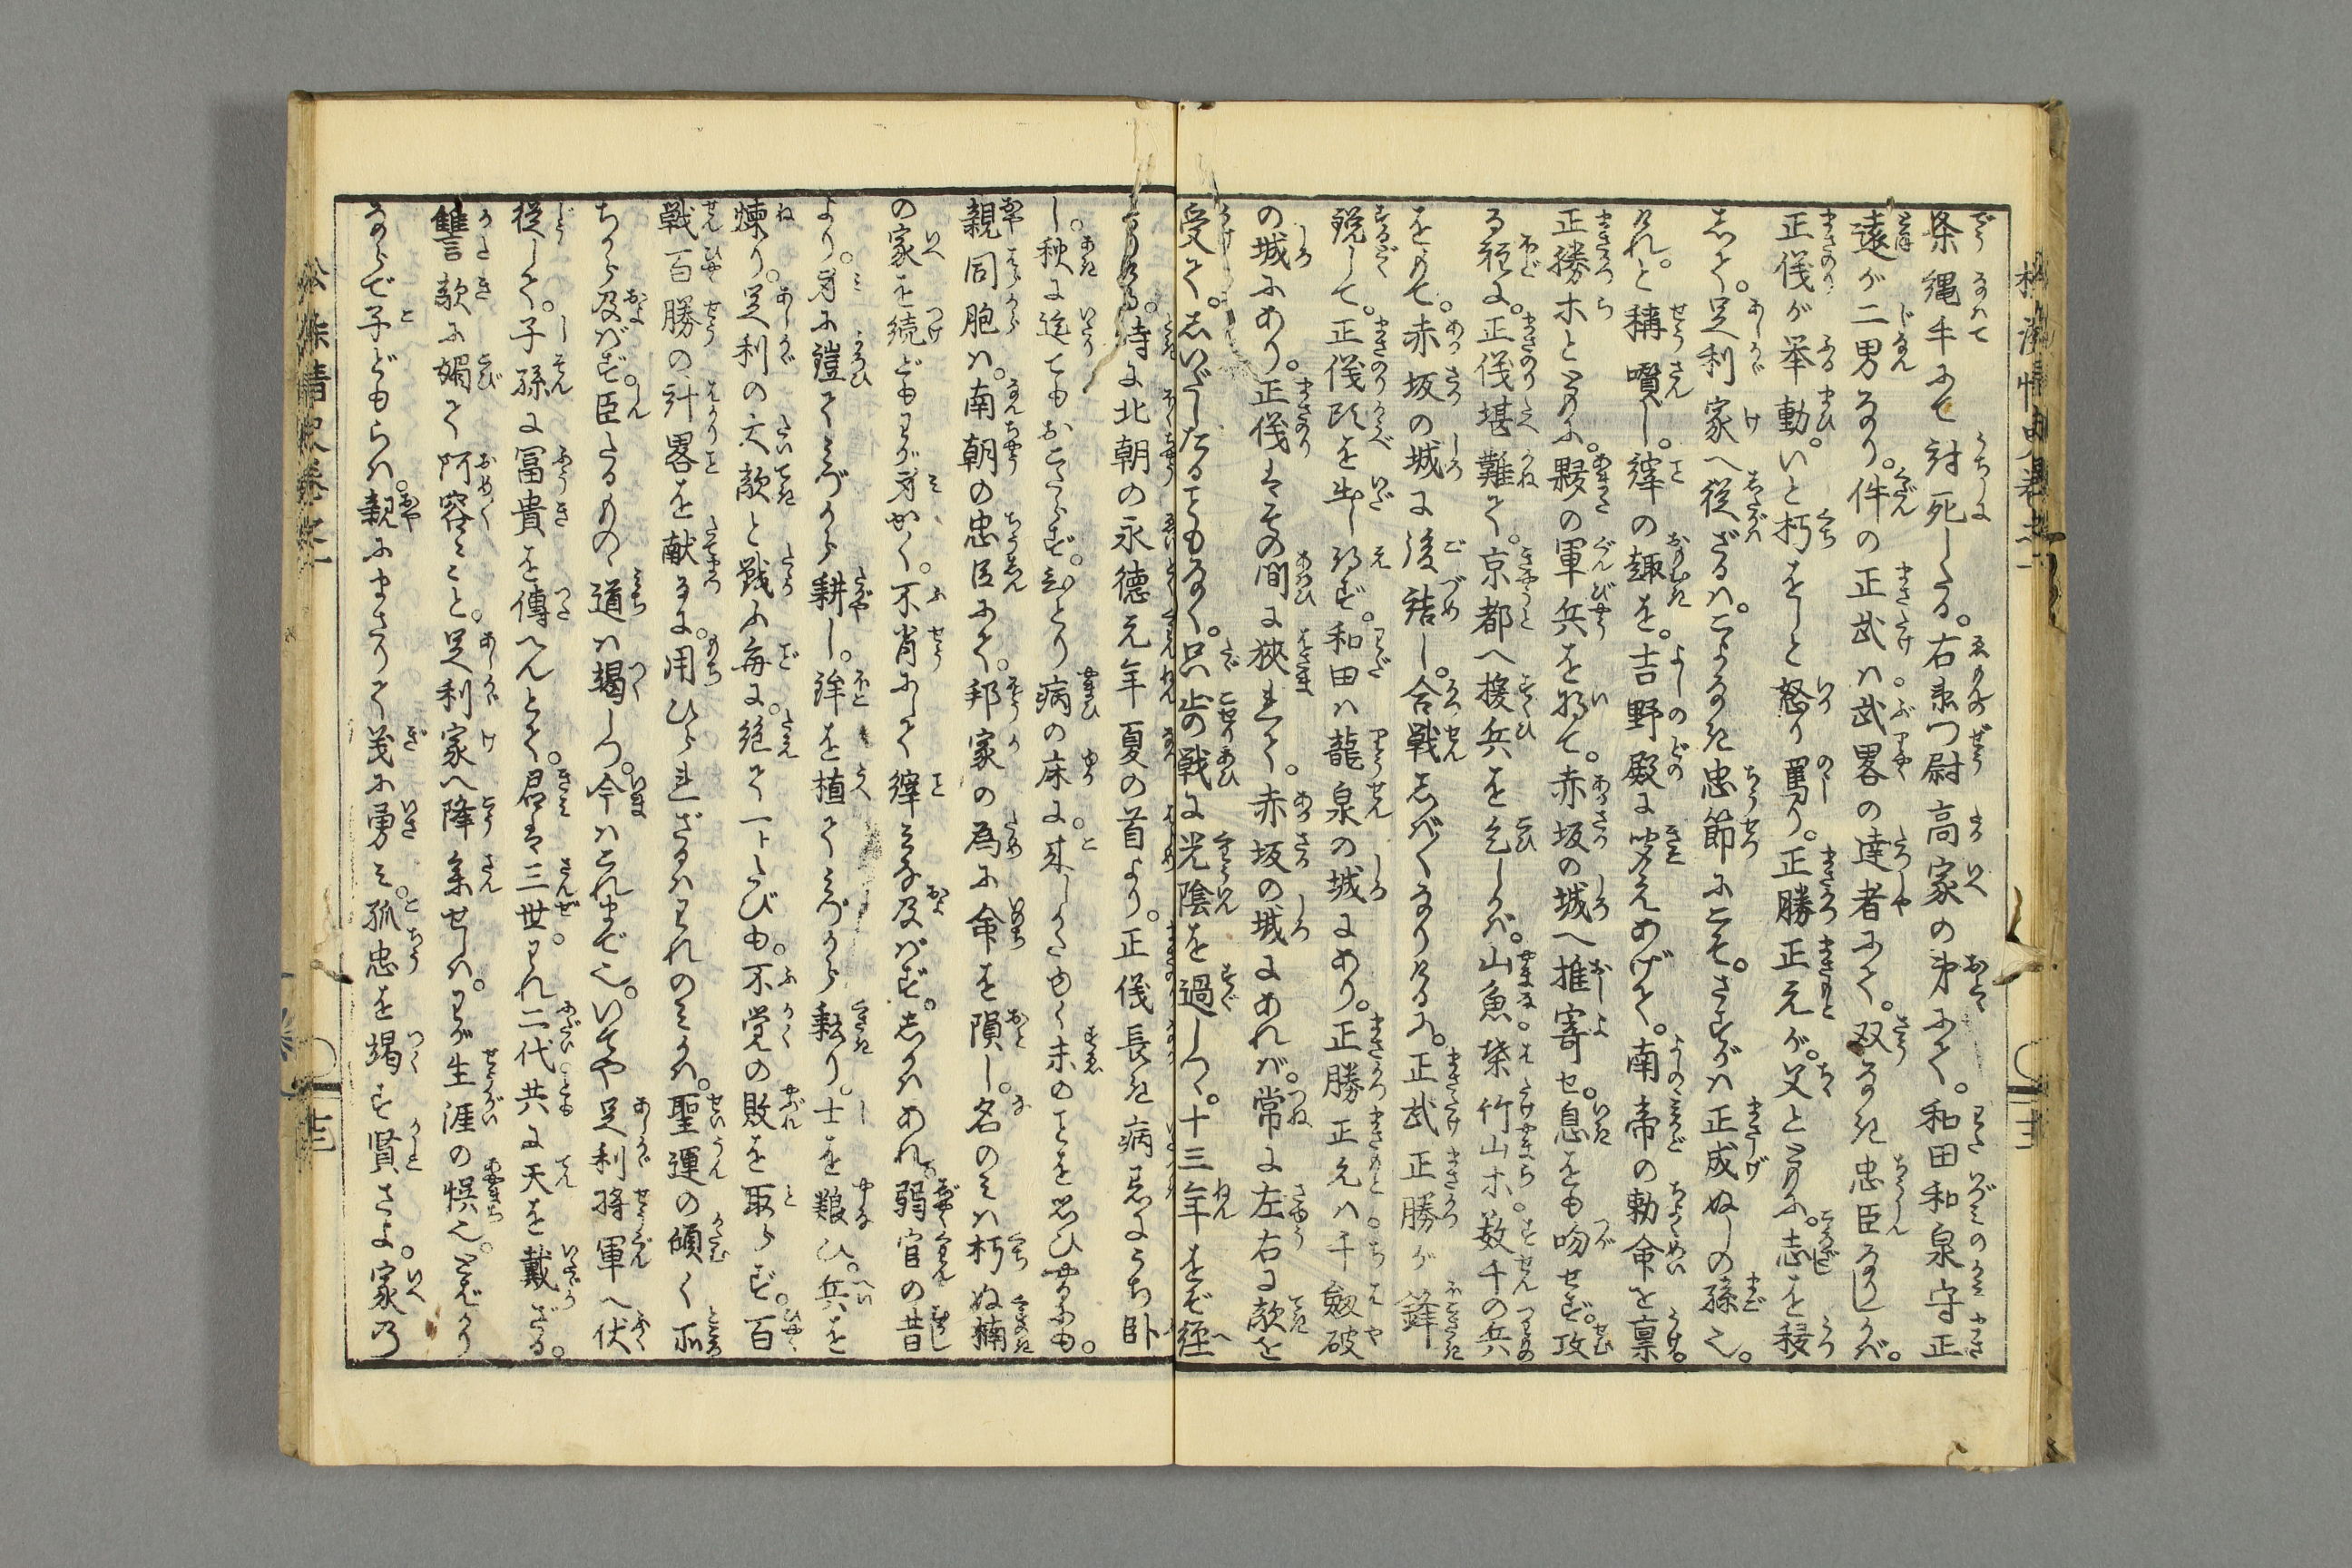 条縄手にて討死しける。右衛門尉高家の弟にて。和田和泉守正
遠が二男なり。件の正武は武畧の達者にて。双なき忠臣なりしかば。
正儀が挙動。いと朽をしと怒り罵り。正勝正元が。父とゝもに。志を移
さで。足利家へ従ざるは。こよなき忠節にこそ。さすがは正成ぬしの孫也。
けれ。と稱賛し。縡の趣を。吉野殿に聞えあげて。南帝の勅命を禀。
正勝ホとゝもに。夥の軍兵を将て。赤坂の城へ推寄せ。息をも吻せず。攻
る程に。正儀堪難て。京都へ援兵を乞しかば。山魚。椉竹山ホ。数千の兵
をもて。赤坂の城に後詰し。合戦しば〱なりけるに。正武正勝が鋒
鋭して。正儀頭を出し得ず。和田は龍泉の城にあり。正勝正元は千劔破
の城にあり。正儀はその間に狭まれて。赤坂の城にあれば。常に左右に敵を
受て。しいだしたることもなく。只歩の戦に光陰を過しつゝ。十三年をぞ経
たりける。時に北朝の永徳元年夏の首より。正儀長き病着にうち臥
し。秋に迄てもおこたらず。ひとり病の床に。来しかたゆく末のことを思ひやるにも。
親同胞は。南朝の忠臣にて。邦家の為に命を隕し。名のみは朽ぬ楠
の家を続ども。わが身かく。不肖にして縡みな及ばず。しかはあれ。弱官の昔
より。身に鎧てみづから耕し。鉾を植てみづから耘り。士を粮ひ。兵を
煉り。足利の大敵と戦ふ毎に。絶て一トたびも。不覚の敗を取らず。百
戦百勝の計畧を献るに。用ひられざるはわれのみかは。聖運の傾く所
ちから及ばず。臣たるものゝ道は竭しつ。今はこれまで也。いでや足利将軍へ伏
従して。子孫に冨貴を傳へんとて。君は三世。われ二代共に天を戴ざる。
讐敵に媚て阿容〻こと。足利家へ降参せしは。わが生涯の悞也。さばかり
ならで子どもらは。親にまさりて義に勇み。孤忠を竭す賢さよ。家の